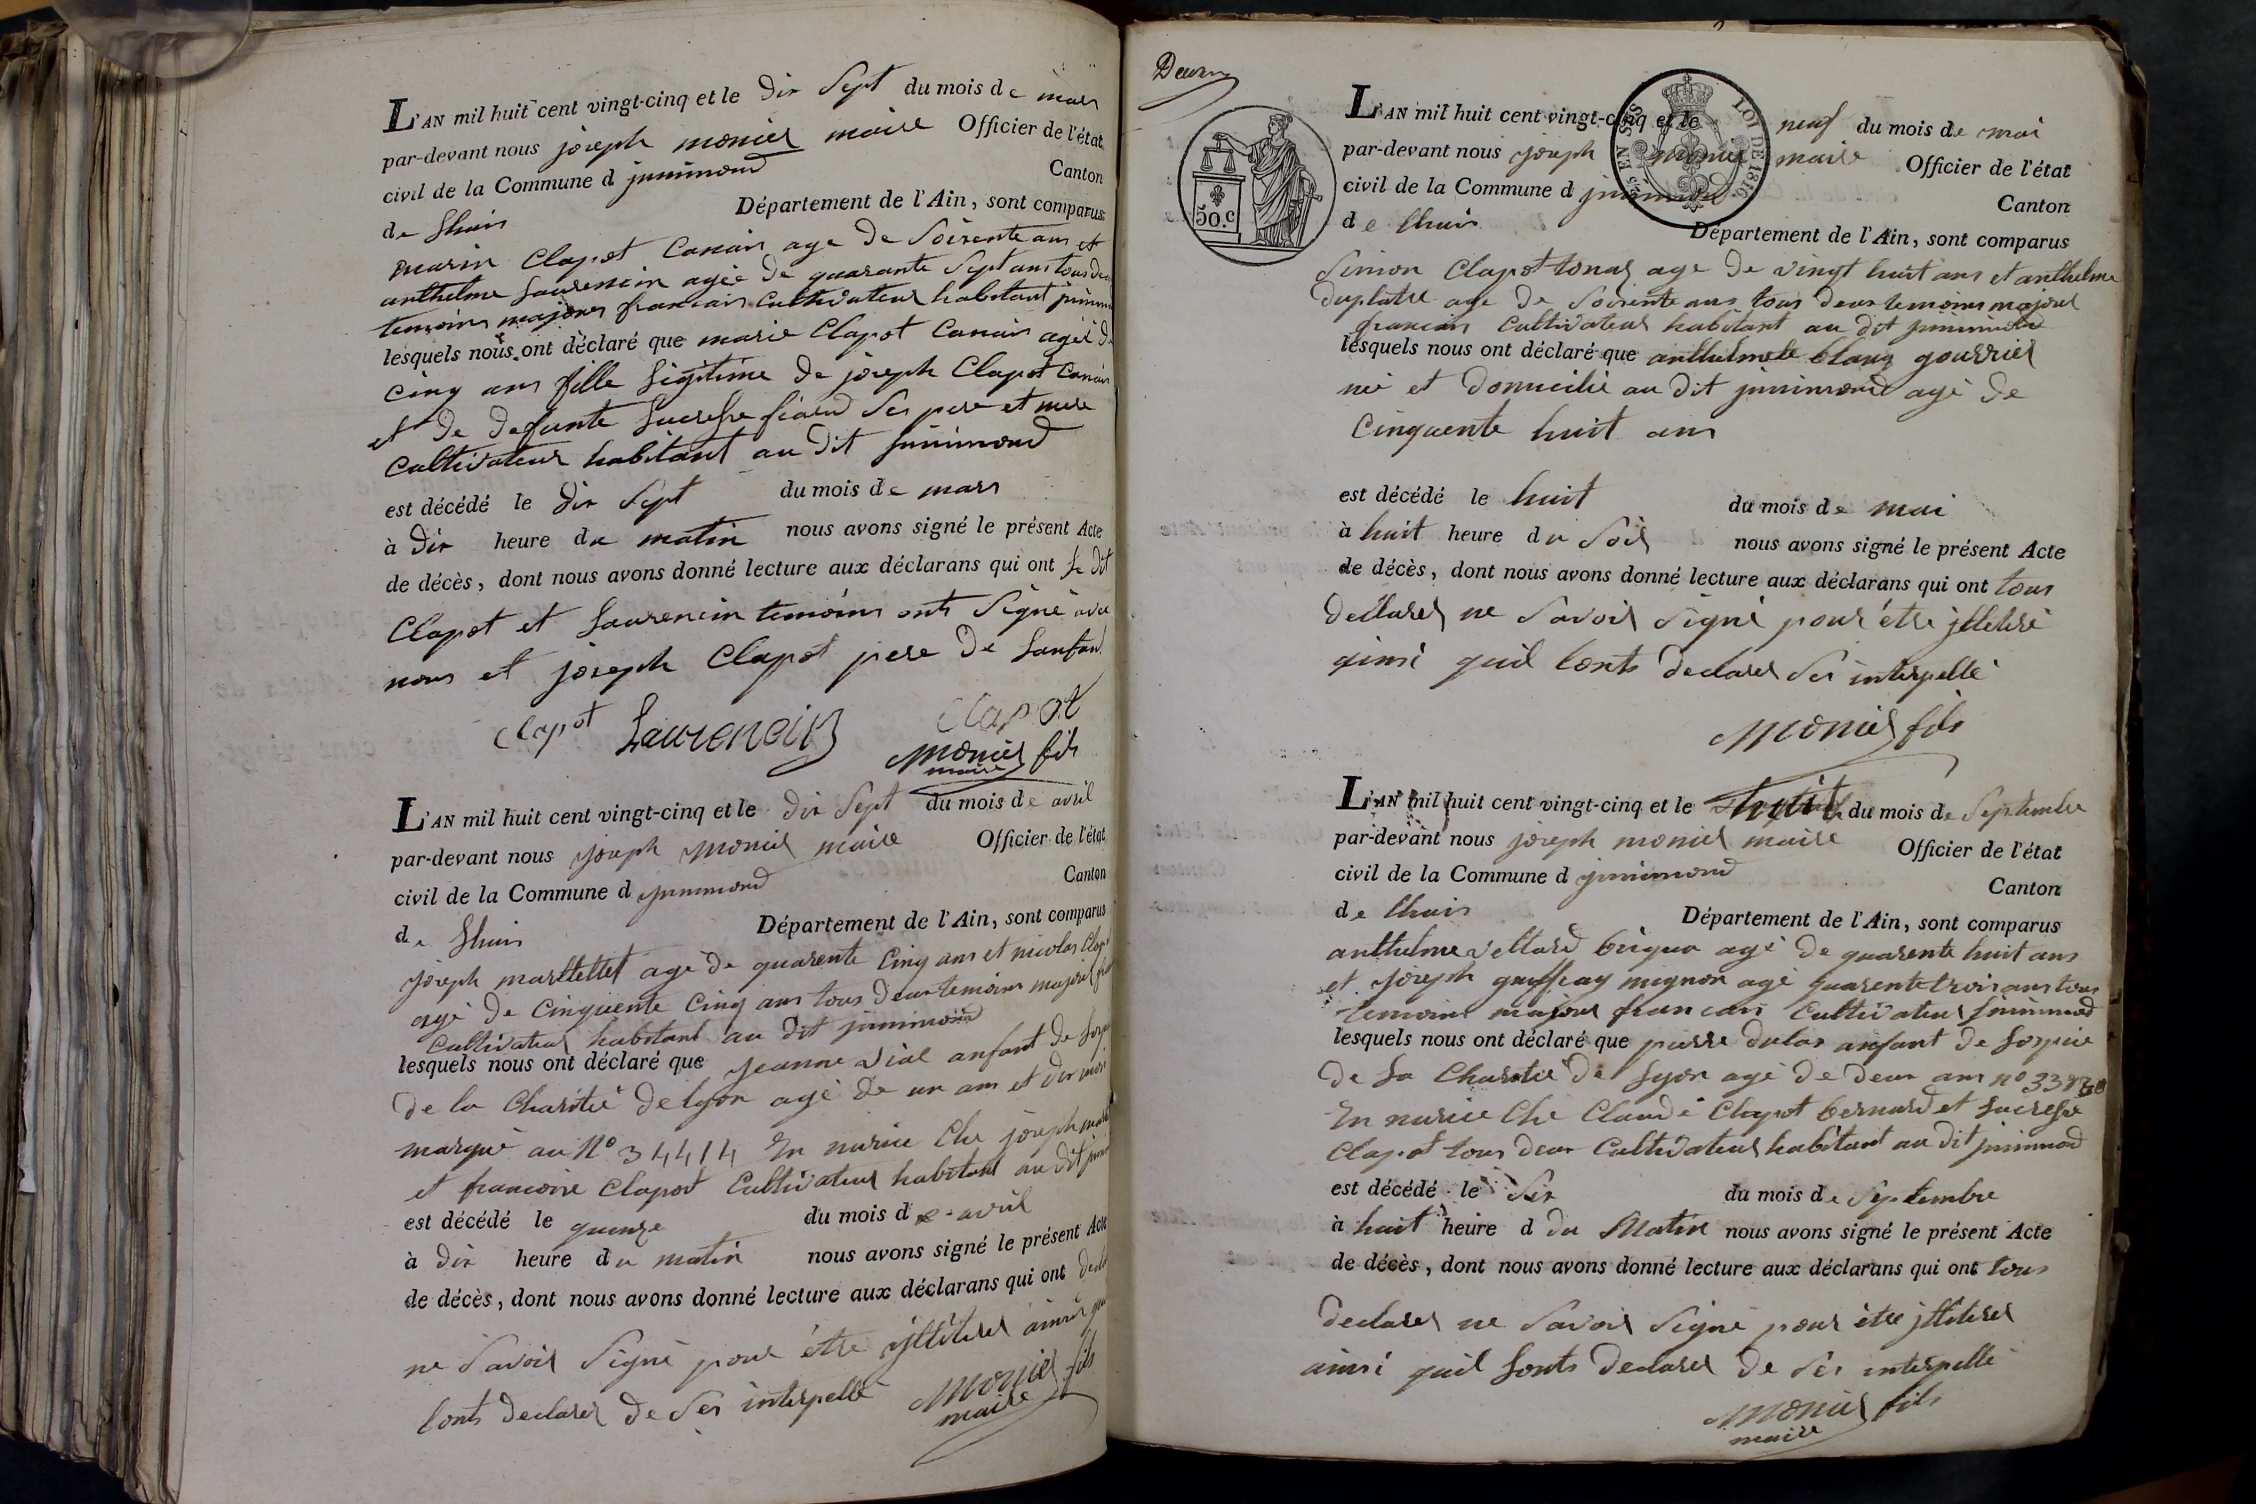 L'AN mil huit cent vingt-cinq et le dix Sept du mois de mars
par-devant nous joseph monier maire Officier de l'état
civil de la Commune d jnnimond Canton
de Lhuis Département de l'Ain, sont comparus
marin Clapot Canain age De Soixente ans et
anthelme Laurencin agée De quarante Sept ans tous deux
temoins majours francais Cultivateur habitant
lesquels nous ont déclaré que marie Clapot Canain agée De
Cinq ans fille Legitime De joseph Clapot Canain
et De Defunte Lucresse Ses pere et mere
Cultivateur habitant au Dit jnnimond
est décédé le Dix Sept du mois de mars
à Dix heure du matin nous avons signé le présent Acte
de décès, dont nous avons donné lecture aux déclarans qui ont Le Dit
Clapot et Laurencin temoins onts Signé avec
nous et joseph Clapot pere De Lanfant
Clapot Laurencin Clapot
Monier fils
maire
L'AN mil huit cent vingt-cinq et le Dix Sept du mois de avril
par-devant nous joseph Monier maire Officier de l'état
civil de la Commune d jnnimond Canton
de Lhuis Département de l'Ain, sont comparus
joseph agé De quarente Cinq ans et nicolas
agé De Cinquente Cinq ans tous Deux temoins majour
Cultivateur habitant au Dit jnnimond
lesquels nous ont déclaré que jeanne vial anfant De
De la Charitié De lyon agé De un ans et Dix mois
marqué au N° 34414 En nurice Che joseph
et francoise Clapot Cultivateur habitant au Dit
est décédé le quenze du mois de avril
à Dix heure du matin nous avons signé le présent Acte
de décès, dont nous avons donné lecture aux déclarans qui ont
ne Savoir Signé pour être jlliterer ainsi
Lonts Declarer De Ses interpellé Monier fils
maire
L'AN mil huit cent vingt-cinq et le neuf du mois de mai
par-devant nous joseph monier maire Officier de l'état
civil de la Commune d jnnimond Canton
de Lhuis Département de l'Ain, sont comparus
50.c
LOI DE 1816.
Simon Clapot tonas age De vingt huit ans et anthelme
Duplatre age De Soixente ans tous Deux temoins majour
francais Cultivateur habitant au dit jnnimond
lesquels nous ont déclaré que anthelme le blanq gourrier
né et Domicilié au Dit jnnimond agé De
Cinquente huit ans
est décédé le huit du mois de mai
à huit heure du Soir nous avons signé le présent Acte
de décès, dont nous avons donné lecture aux déclarans qui ont tous
Declarer ne Savoir Signé pour être jlleteré
ainsi quil Lonts Declarer Ses interpellé
Monier fils
L'AN mil huit cent vingt-cinq et le huit du mois de Septembre
par-devant nous joseph monier maire Officier de l'état
civil de la Commune d jnnimond Canton
de Lhuis Département de l'Ain, sont comparus
anthelme vettard agé De quarente huit ans
et joseph mignon agé quarente trois ans tous
temoins majour francais Cultivateur jnnimond
lesquels nous ont déclaré que pierre anfant De Lospice
De La Charitié De Lyon agé De Deux ans n°
En nurice Che Claude Clapot bernard et Lucresse
Clapot tous Deux Cultivateur habitant au Dit jnnimond
est décédé le Six du mois de Septembre
à huit heure d du Matin nous avons signé le présent Acte
de décès, dont nous avons donné lecture aux déclarans qui ont tous
Declarer ne Savoir Signé pour être jlliterer
ainsi quil Lonts Declarer De Ses interpellé
Monier fils
maire